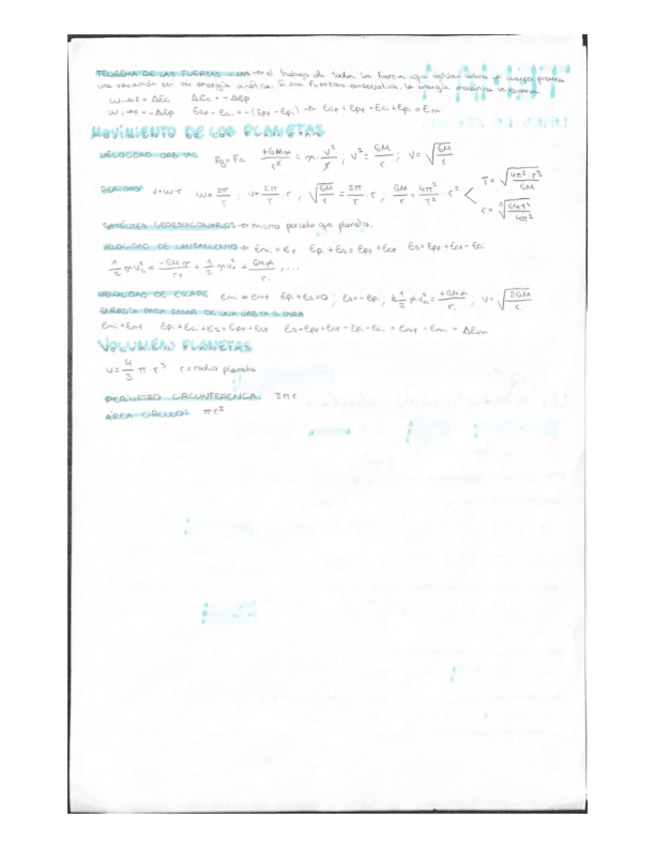 TEOREMA DE LAS FUERZAS VIVAS → el trabajo de todas las fuerzas que actúan sobre un cuerpo provoca
una variación en su energía cinética. Si son fuerzas conservativas, la energía mecánica se conserva.
Wi→f = ΔEc ΔEc = -ΔEp
Wi→f = -ΔEp Ecf - Eci = -(Epf - Epi) → Ecf + Epf = Eci + Epi = Em
MOVIMIENTO DE LOS PLANETAS
VELOCIDAD ORBITAL Fg = Fc +GMm/r² = m · v²/r ; v² = GM/r ; v = √(GM/r)
PERIODO v = w·r w = 2π/T ; v = 2π/T · r ; √(GM/r) = 2π/T · r ; GM/r = 4π²/T² · r² < T = √(4π²·r³/GM)
r = ³√(GMT²/4π²)
SATÉLITES GEOESTACIONARIOS → mismo periodo que planeta.
VELOCIDAD DE LANZAMIENTO → Emi = Ef Epi + Es = Epf + Ecf Es = Epf + Ecf - Epi
1/2 mv² = -GMm/rf + 1/2 mv² + GMm/ri , ...
VELOCIDAD DE ESCAPE Emi = Emf Epi + Es = 0 ; Es = -Epi ; 1/2 mv² = +GMm/ri ; v = √(2GM/ri)
ENERGÍA PARA PASAR DE UNA ORBITA A OTRA
Emi = Emf Epi + Eci + Es = Epf + Ecf Es = Epf + Ecf - Epi - Eci = Emf - Emi = ΔEm
VOLUMEN PLANETAS
V = 4/3 π · r³ r = radio planeta
PERÍMETRO CIRCUNFERENCIA: 2πr
ÁREA CÍRCULO: πr²